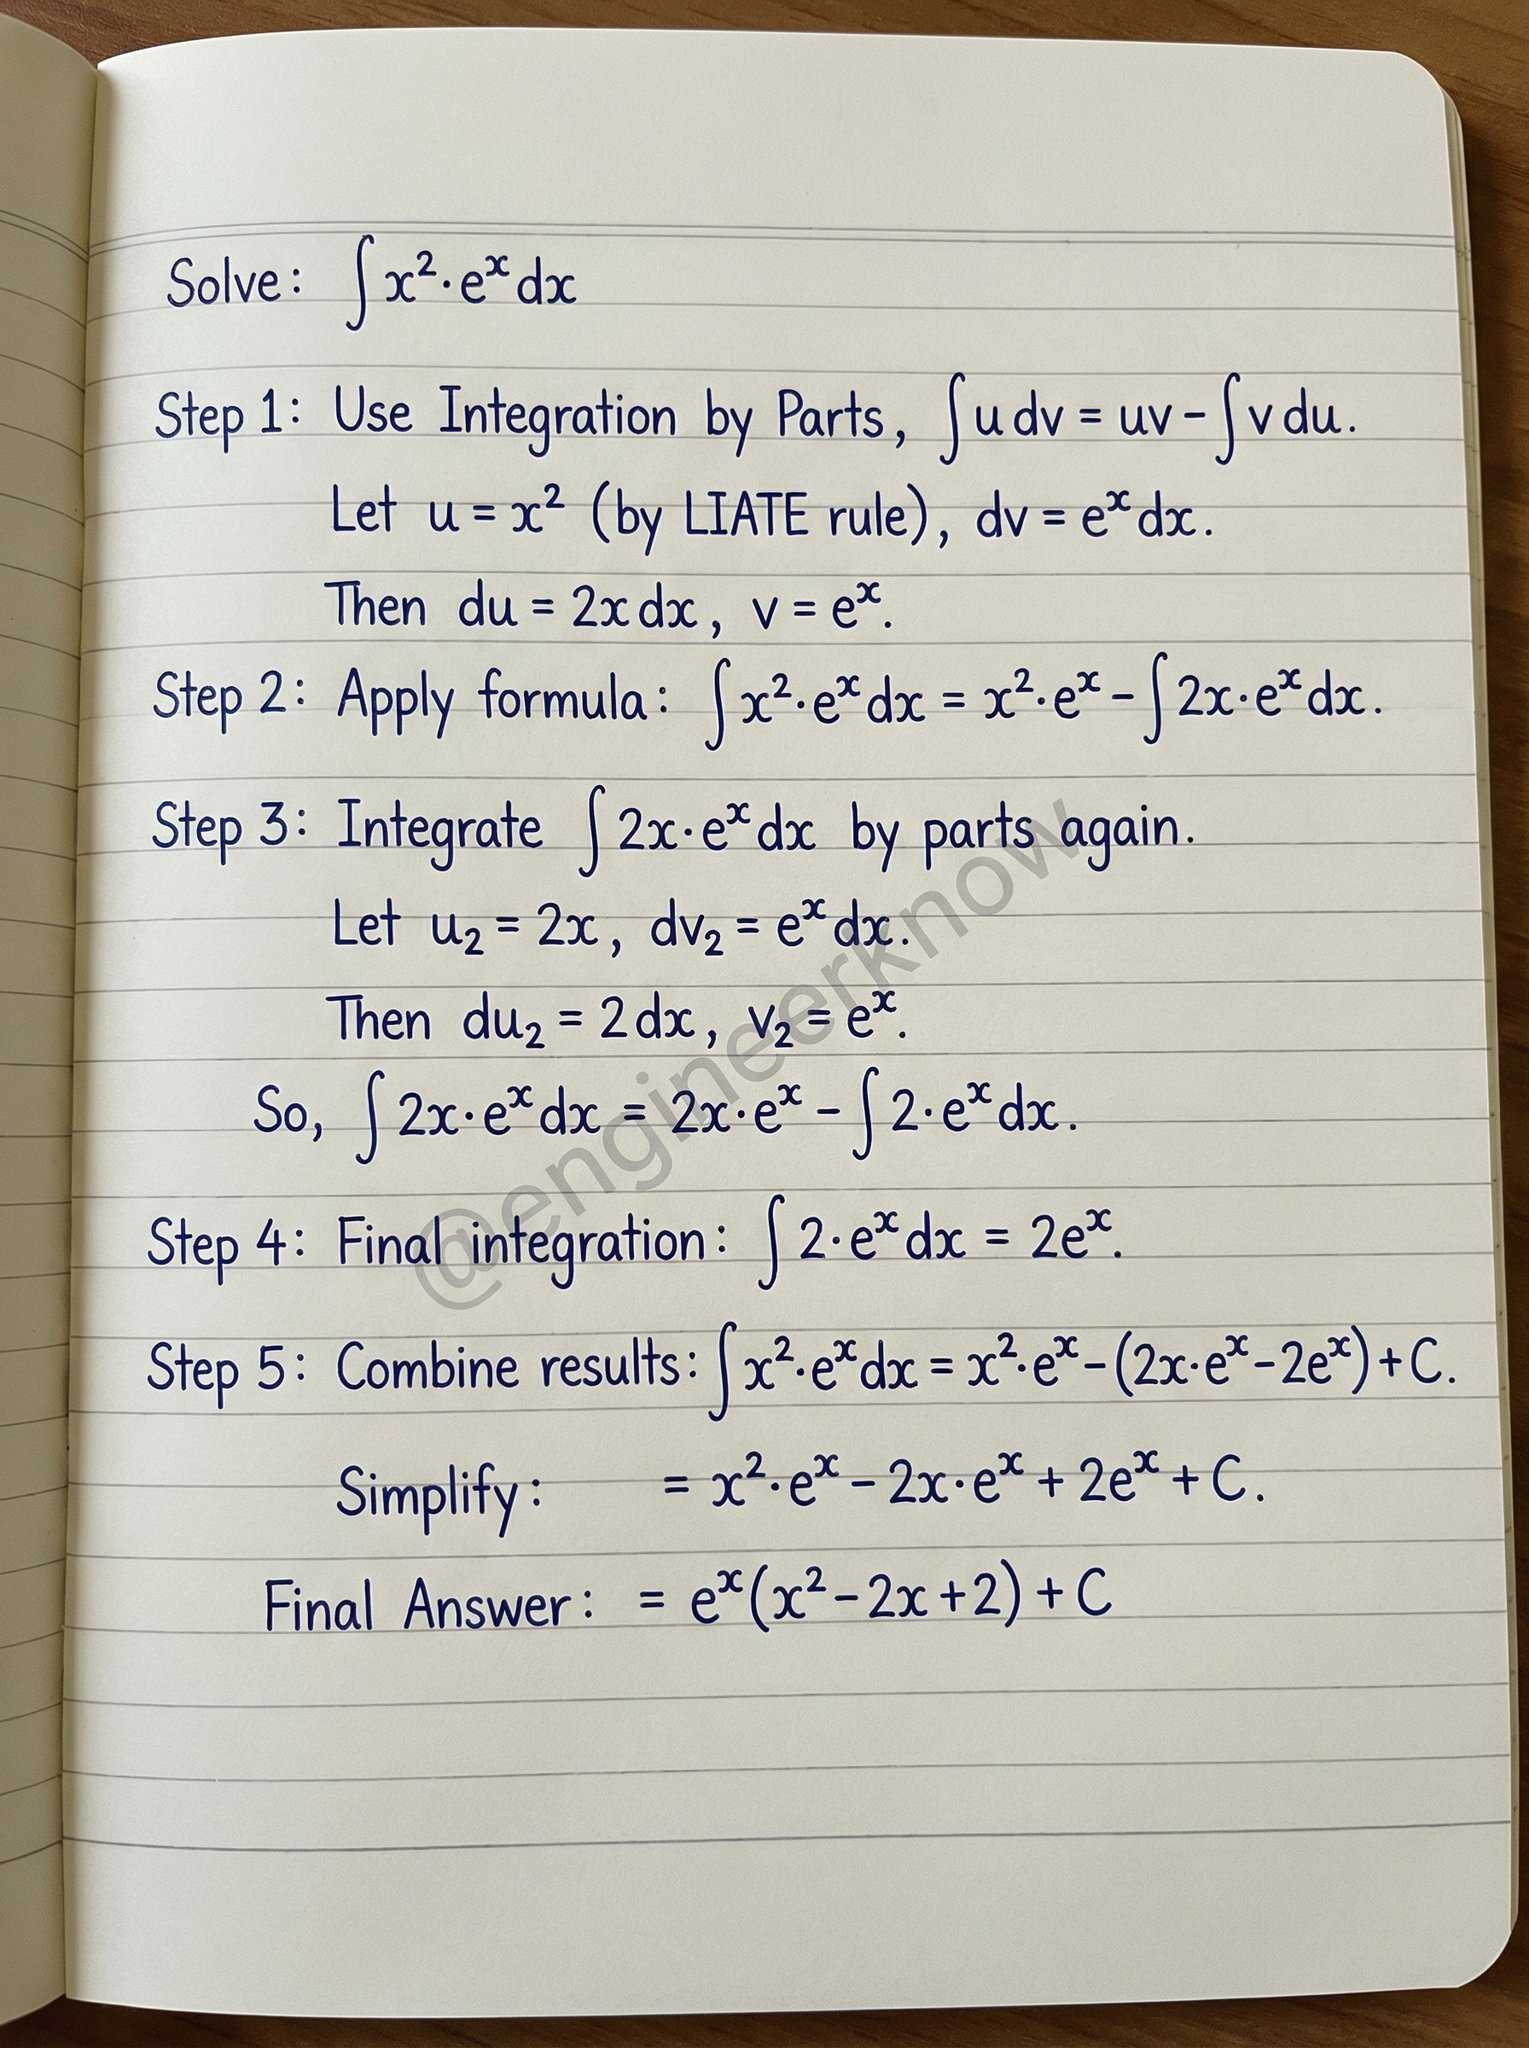 Solve: ∫x²·eˣdx
Step 1: Use Integration by Parts, ∫u dv = uv - ∫v du.
Let u = x² (by LIATE rule), dv = eˣdx.
Then du = 2x dx, v = eˣ.
Step 2: Apply formula: ∫x²·eˣdx = x²·eˣ - ∫2x·eˣdx.
Step 3: Integrate ∫2x·eˣdx by parts again.
Let u₂ = 2x, dv₂ = eˣdx.
Then du₂ = 2dx, v₂ = eˣ.
So, ∫2x·eˣdx = 2x·eˣ - ∫2·eˣdx.
Step 4: Final integration: ∫2·eˣdx = 2eˣ.
Step 5: Combine results: ∫x²·eˣdx = x²·eˣ - (2x·eˣ - 2eˣ) + C.
Simplify: = x²·eˣ - 2x·eˣ + 2eˣ + C.
Final Answer: = eˣ(x² - 2x + 2) + C
@engineerknow